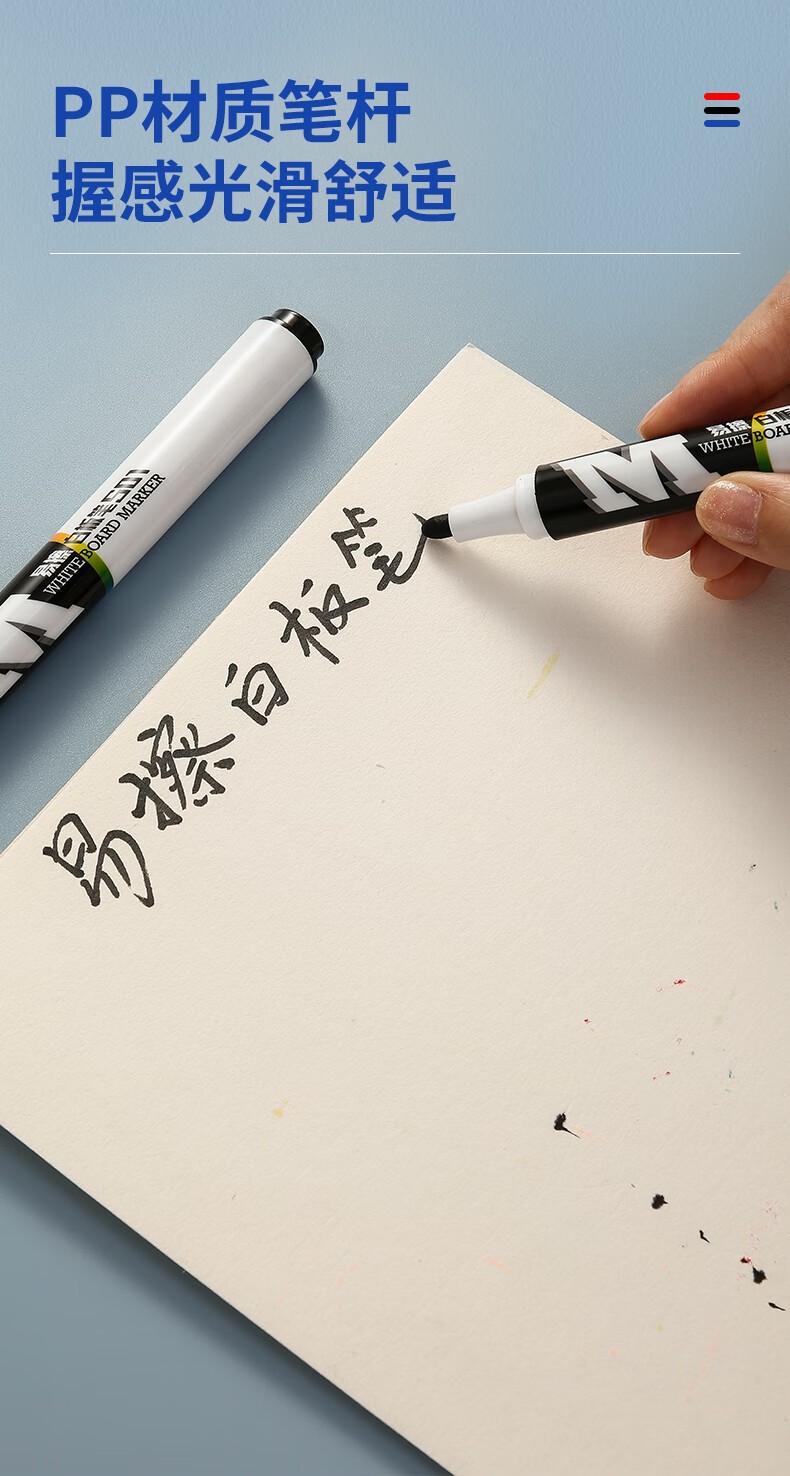 PP材质笔杆
握感光滑舒适
易擦白板笔901
WHITE BOARD MARKER
M
易擦白板笔
M
易擦白板
WHITE BOAR